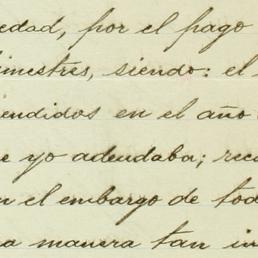 edad, por el pago
imestres, siendo: el
endidos en el año
e yo adeudaba; rec
n el embargo de tod
a manera tan in